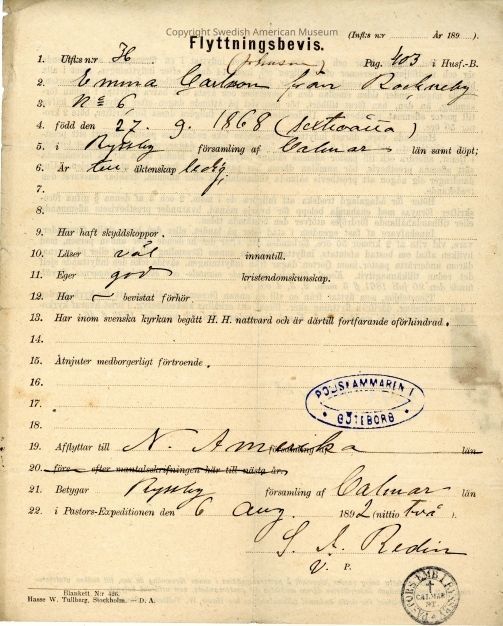 Copyright Swedish American Museum
Flyttningsbevis.
(Inftks n:r År 189 ).
1. Utfks n:r H (Johnson) Pag. 403 i Husf.-B.
2. Emma Carlson från Rockneby
3. No 6
4. född den 27. 9. 1868 (sextioåtta)
5. i Ryssby församling af Calmar län samt döpt;
6. Är till äktenskap ledig,
7.
8.
9. Har haft skyddskoppor.
10. Läser väl innantill.
11. Eger god kristendomskunskap.
12. Har — bevistat förhör.
13. Har inom svenska kyrkan begått H. H. nattvard och är därtill fortfarande oförhindrad.
14.
15. Åtnjuter medborgerligt förtroende.
16.
17.
18.
POLISKAMMAREN I
GÖTEBORG
19. Afflyttar till N. Amerika län
20. före efter mantalsskrifningen här till nästa år,
21. Betygar Ryssby församling af Calmar län
22. i Pastors-Expeditionen den 6 aug. 1892 (nittio två).
S. J. Redin
V. P.
Blankett N:r 426.
Hasse W. Tullberg, Stockholm. — D. A.
PASTORS EMBETE
CALMAR